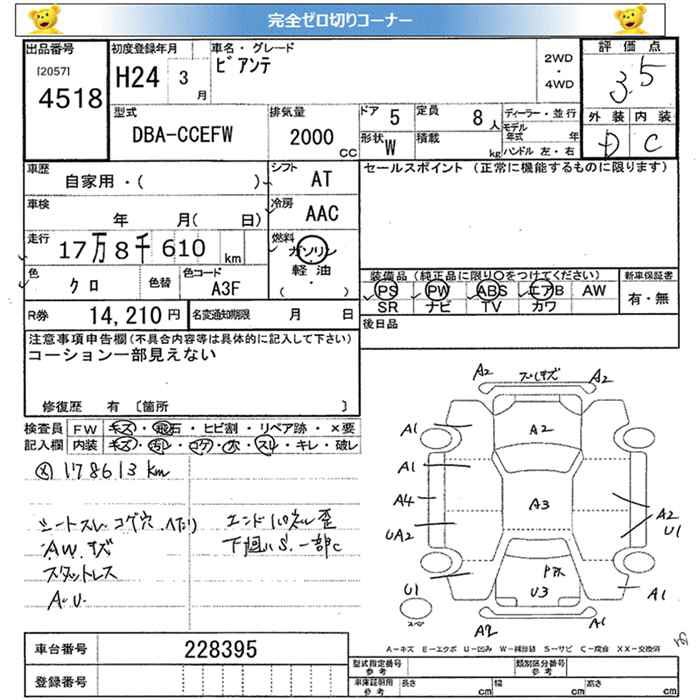 完全ゼロ切りコーナー
出品番号 初度登録年月 車名・グレード 評価点
[2057] ビアンテ 2WD
4518 H24 3月 ・ 3.5
4WD
型式 排気量 ドア 5 定員 8人 ディーラー・並行 外装 内装
DBA-CCEFW 2000CC 形状 W 積載 kg モデル年式 年 D C
ハンドル 左・右
車歴 シフト セールスポイント (正常に機能するものに限ります)
自家用・( ) AT
車検 冷房
年 月( 日) AAC
走行 燃料
17万8千610km ガソリン
色 色替 色コード 軽油 装備品(純正品に限り○をつけてください) 新車保証書
クロ A3F ( ・ ) PS PW ABS エアB AW 有・無
SR ナビ TV カワ
R券 14,210円 名変通知期限 月 日 後日品
注意事項申告欄(不具合内容等は具体的に記入して下さい)
コーション一部見えない
修復歴 有 〔箇所 〕
検査員 FW キズ・飛石・ヒビ割・リペア跡・×要
記入欄 内装 キズ・汚レ・コゲ・穴・スレ・キレ・破レ
178613km
シートスレ コゲ穴 ヘタリ エンドパネル歪
AWキズ 下廻りS.一部C
スタットレス
A.U.
A2 スリキズ A2
A1 A2
A1
A4 A3 A2
UA2 U1
U1 U3 A1
スペ A2 A1
A-キズ E-エクボ U-凹み W-補修跡 S-サビ C-腐食 XX-交換済
車台番号 228395
登録番号
型式指定番号 参考 類別区分番号 参考
車庫証明用 参考 長さ cm 幅 cm 高さ cm